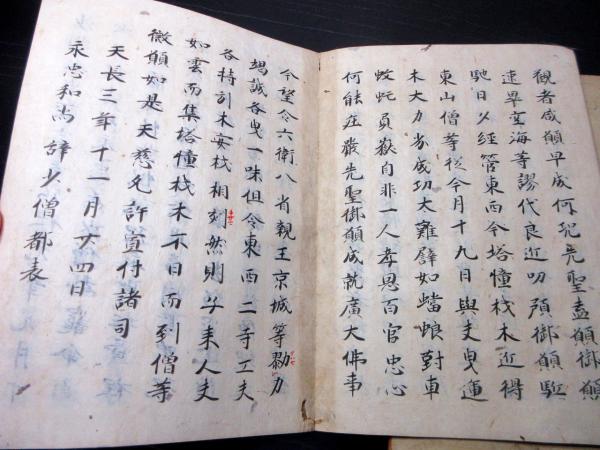 観者咸願早成何況先聖盡御願
速畢空海等謬代良近叨預御願駈
馳日夕經營東西今塔幢材木近得
東山僧等從今月十九日與夫曳運
木大力劣成功太難譬如蟷蜋對車
蚊虻負嶽自非一人孝恩百官忠心
何能莊嚴先聖御願成就廣大佛事
今望令六衛八省親王京城等勠力
竭誠各曳一味但令東西二寺工夫
各特引木安材相刻然則子来人夫
如雲而集塔幢材木不日而到僧等
微願如是天慈允許宣付諸司
天長三年十一月廿四日
永忠和尚辞少僧都表